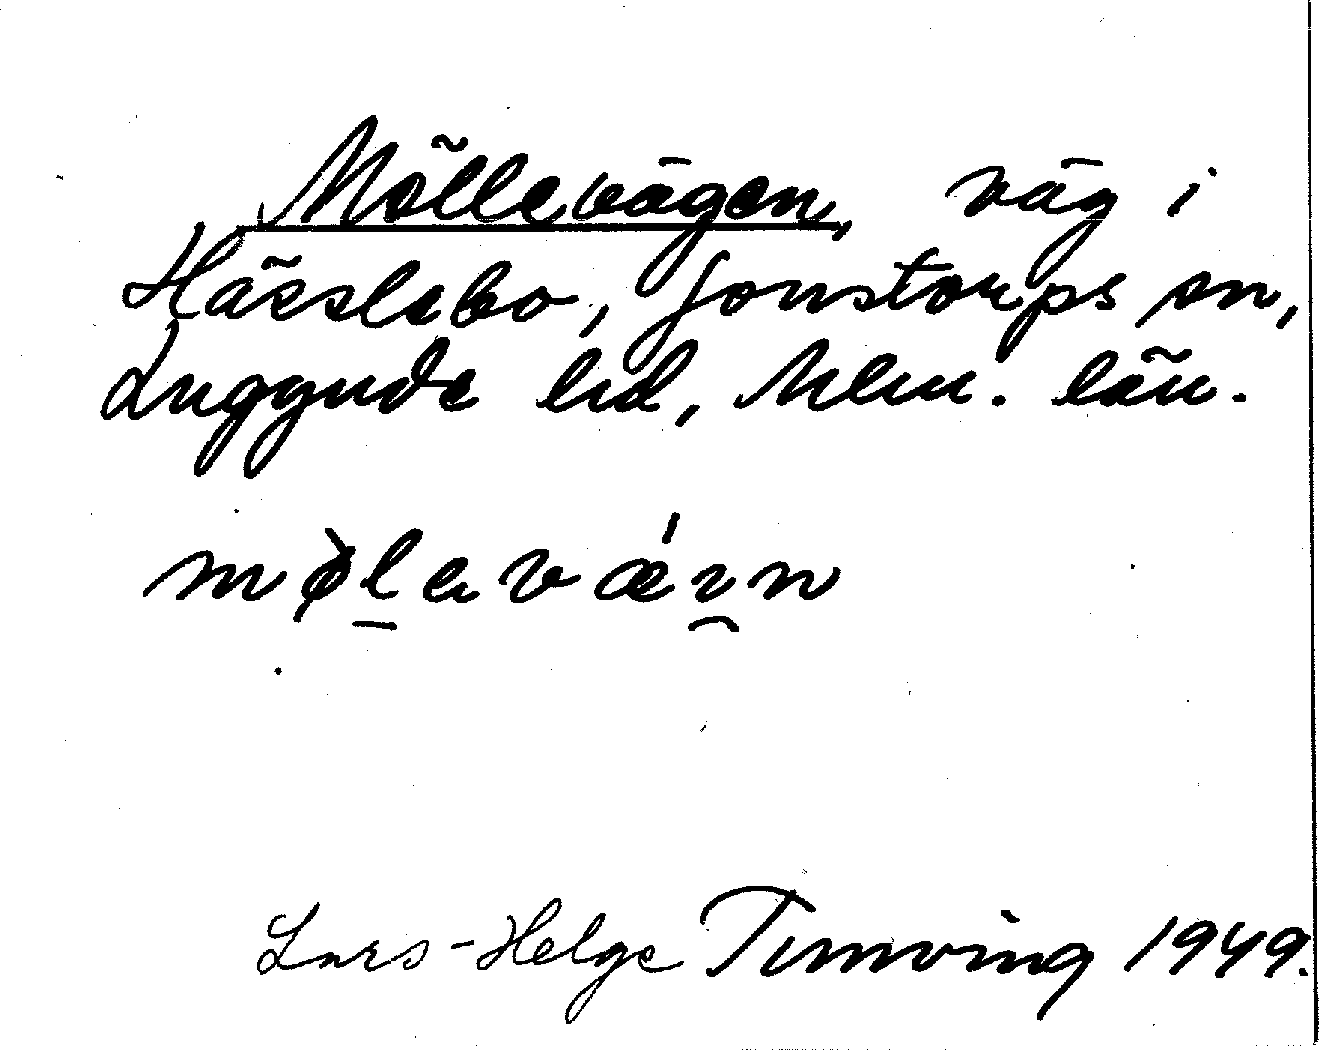 Möllevägen, väg i
Hässlebo, Jonstorps sn,
Luggude hd, Mlm. län.
mø̀l̠evǽi̯n
Lars-Helge Tunving 1949.